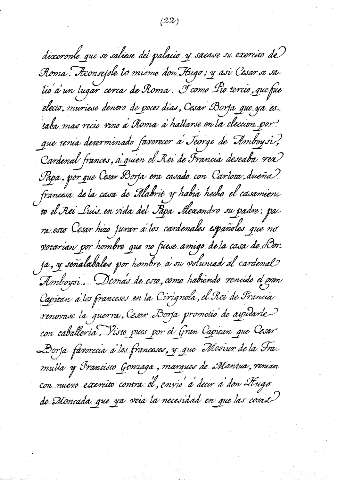 (22)
dixeronle que se saliese del palacio y sacase su exercito de
Roma. Aconsejole lo mismo don Hugo; y asi Cesar se sa-
lió á un lugar cerca de Roma. Y como Pio tercio, que fue
electo, muriese dentro de poces dias, Cesar Borja que ya es-
taba mas recio vino á Roma á hallarse en la eleccion por
que tenia determinado favorecer á Jeorge de Amboysi,
Cardenal frances, á quien el Rei de Francia deseaba ver
Papa, por que Cesar Borja era casado con Carlota, dueña
francesa de la casa de Alabrit y habia hecho el casamien-
to el Rei Luis en vida del Papa Alexandro su padre: pa-
ra esto Cesar hizo jurar á los cardenales españoles que no
votarian por hombre que no fuese amigo de la casa de Bor-
ja, y señalabales por hombre á su voluntad al cardenal
Amboysi. Demás de esto, como habiendo vencido el gran
Capitan á los franceses en la Cirignola, el Rei de Francia
renovase la guerra, Cesar Borja prometio de ayudarle
con caballeria. Visto pues por el Gran Capitan que Cesar
Borja favorecia á los franceses, y que Mosiur de la Tra-
mulla y Francisco Gonzaga, marques de Mantua, venian
con nuevo exercito contra él, envió á decir á don Hugo
de Moncada que ya veia la necesidad en que las cosas